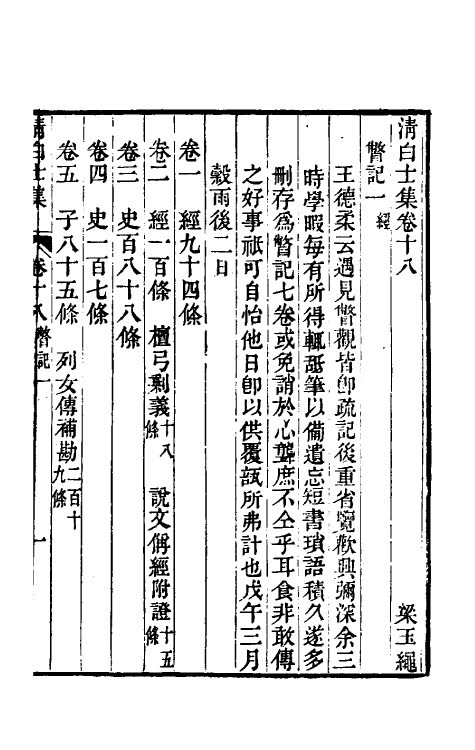 清白士集卷十八 梁玉繩
瞥記一 經
王德柔云遇見瞥觀皆卽疏記後重省覽歡興彌深余三
時學暇每有所得輒舐筆以備遺忘短書瑣語積久遂多
刪存爲瞥記七卷或免誚於心聾庶不仝乎耳食非敢傳
之好事祇可自怡他日卽以供覆瓿所弗計也戊午三月
穀雨後二日
卷一 經九十四條
卷二 經一百條 檀弓剩義十八條 說文偁經附證十五條
卷三 史百八十八條
卷四 史一百七條
卷五 子八十五條 列女傳補勘二百十九條
清白士集 卷十八 瞥記一 一